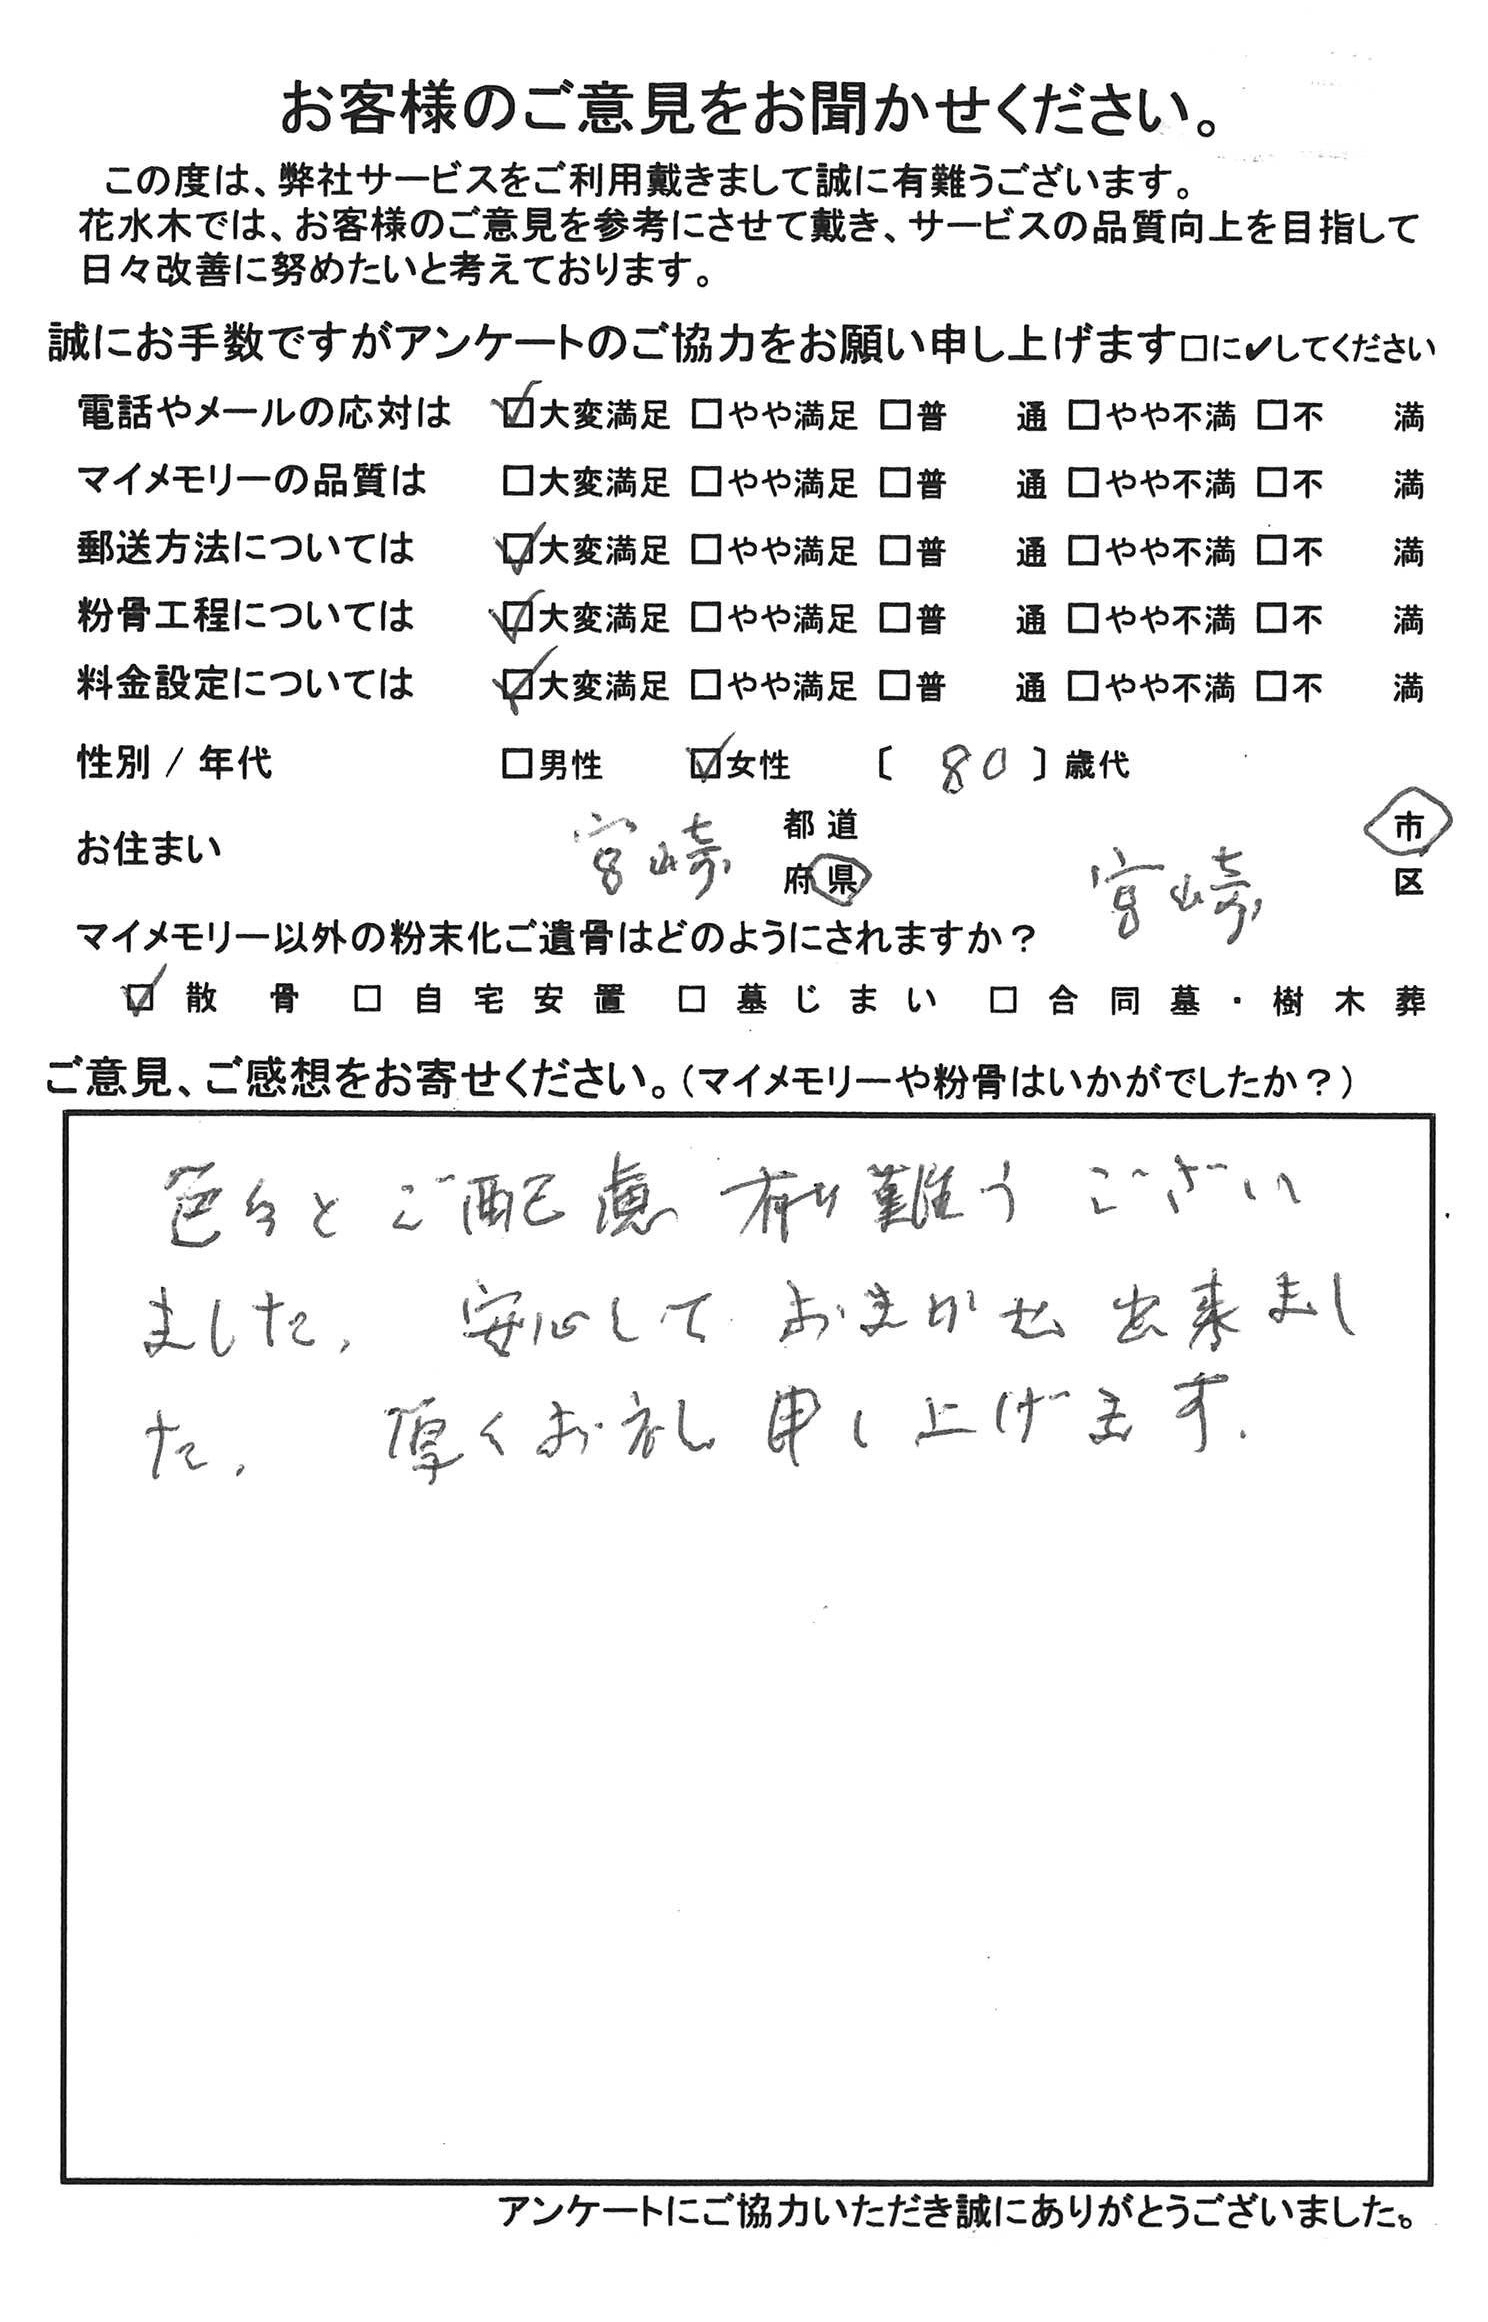 お客様のご意見をお聞かせください。
この度は、弊社サービスをご利用戴きまして誠に有難うございます。
花水木では、お客様のご意見を参考にさせて戴き、サービスの品質向上を目指して
日々改善に努めたいと考えております。
誠にお手数ですがアンケートのご協力をお願い申し上げます□に✔してください
電話やメールの応対は ☑大変満足 □やや満足 □普 通 □やや不満 □不 満
マイメモリーの品質は □大変満足 □やや満足 □普 通 □やや不満 □不 満
郵送方法については ☑大変満足 □やや満足 □普 通 □やや不満 □不 満
粉骨工程については ☑大変満足 □やや満足 □普 通 □やや不満 □不 満
料金設定については ☑大変満足 □やや満足 □普 通 □やや不満 □不 満
性別 / 年代 □男性 ☑女性 〔 80 〕歳代
お住まい 宮崎 都道府県 宮崎 市区
マイメモリー以外の粉末化ご遺骨はどのようにされますか？
☑ 散骨 □ 自宅安置 □ 墓じまい □ 合同墓・樹木葬
ご意見、ご感想をお寄せください。（マイメモリーや粉骨はいかがでしたか？）
色々とご配慮有り難うござい
ました。安心しておまかせ出来まし
た。厚くお礼申し上げます。
アンケートにご協力いただき誠にありがとうございました。